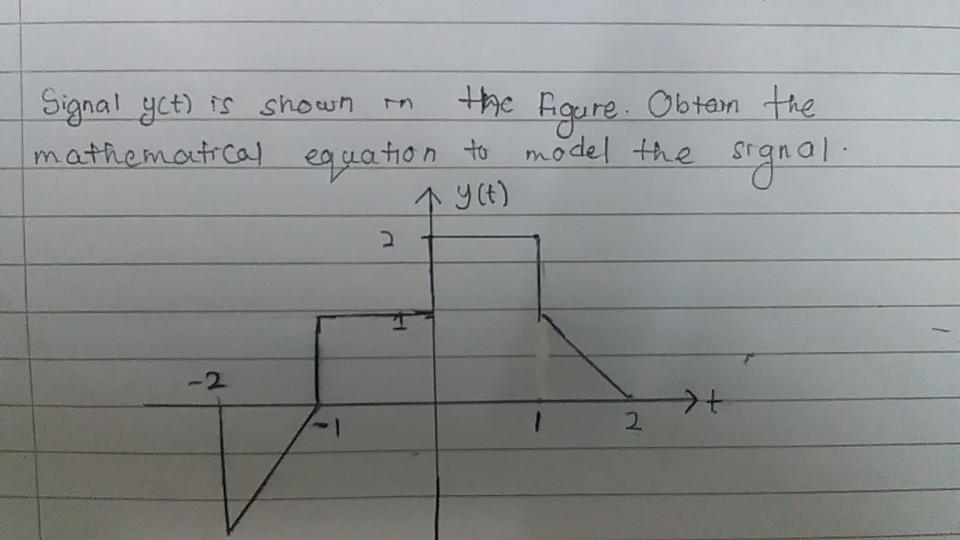 Signal y(t) is shown in the figure. Obtain the
mathematical equation to model the signal.
y(t)
2
1
-2
-1
1
2
t